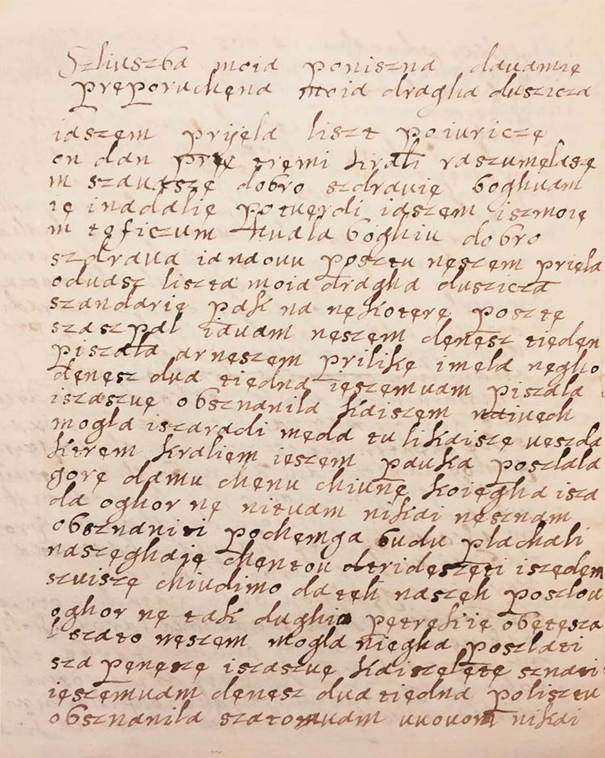 Szliuszba moia poniszna davamię
preporuchena moia dragha duszicza
iaszem prijęla liszt poiuriczę
on dan pry tremi krali raszumęlaszę
m szavaszę dobro szdravię boghuam
ię inadalię potverdi iaszem iszmoię
m tęficzum huala boghiu dobro
szdrava ianovu posztu nęszem prięla
oduasz liszta moia dragha duszicza
szandarię pak na nękotęrę posztę
szaszpal iavam nęszem dęnęsz tięden
piszala ar nęszem prilikę imęla nęgho
dęnęsz dua tiędna ięszęmvam piszala
iszaszvę obsznanila kaiszem
mogla iszaradi męda tulikaiszę veszda
kręm kraliem ięszem pauka poszlala
gorę damu chęnu chiunę koięgha isza
da oghor nę nituam nikai nęsznam
obsznaniti pochęmga budu plachali
naszęghaię chęntou dtridęszęti iszędęm
szviszę chiudimo datęh naszęh poszlou
oghor nę tak dughi pętrękiię obętęsza
szato nęszem mogla nięgha poszlati
sza pęnęzę iszaszvę kaiszęlętę sznati
ięszęmvam dęnęsz dua tiędna polisztu
obsznanila szatomvam uuovom nikai